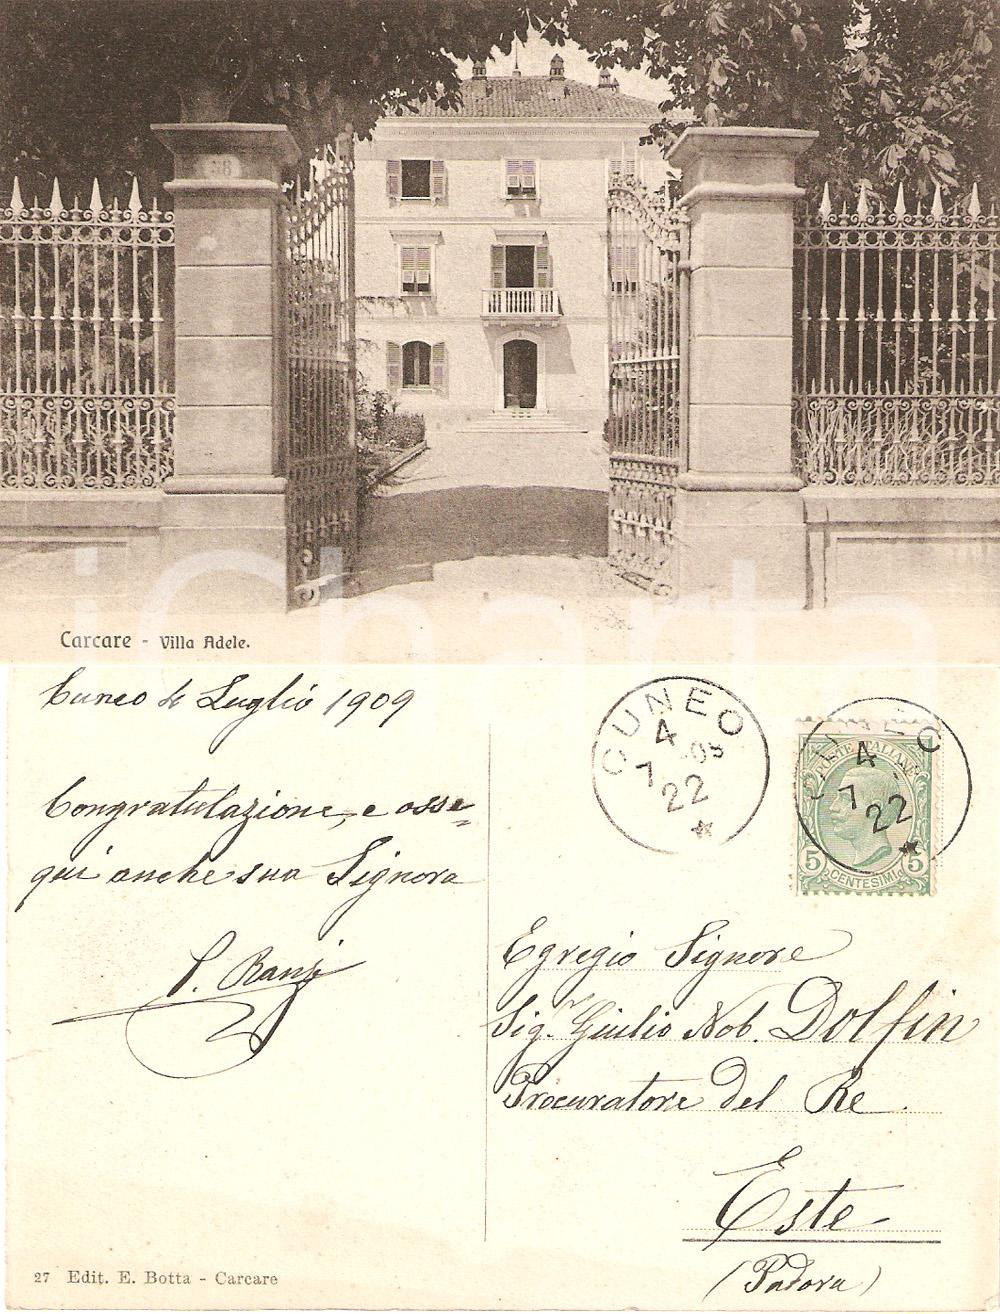 38
Carcare - Villa Adele.
iCharta
Cuneo 4 Luglio 1909
Congratulazione, e osse=
qui anche sua Signora
P. Ranzi
CUNEO
4
7 -09
22
POSTE ITALIANE
CUNEO
4
7
22
5 5
CENTESIMI
Egregio Signore
Sig.r Giulio Nob. Dolfin
Procuratore del Re
Este
(Padova)
27 Edit. E. Botta - Carcare